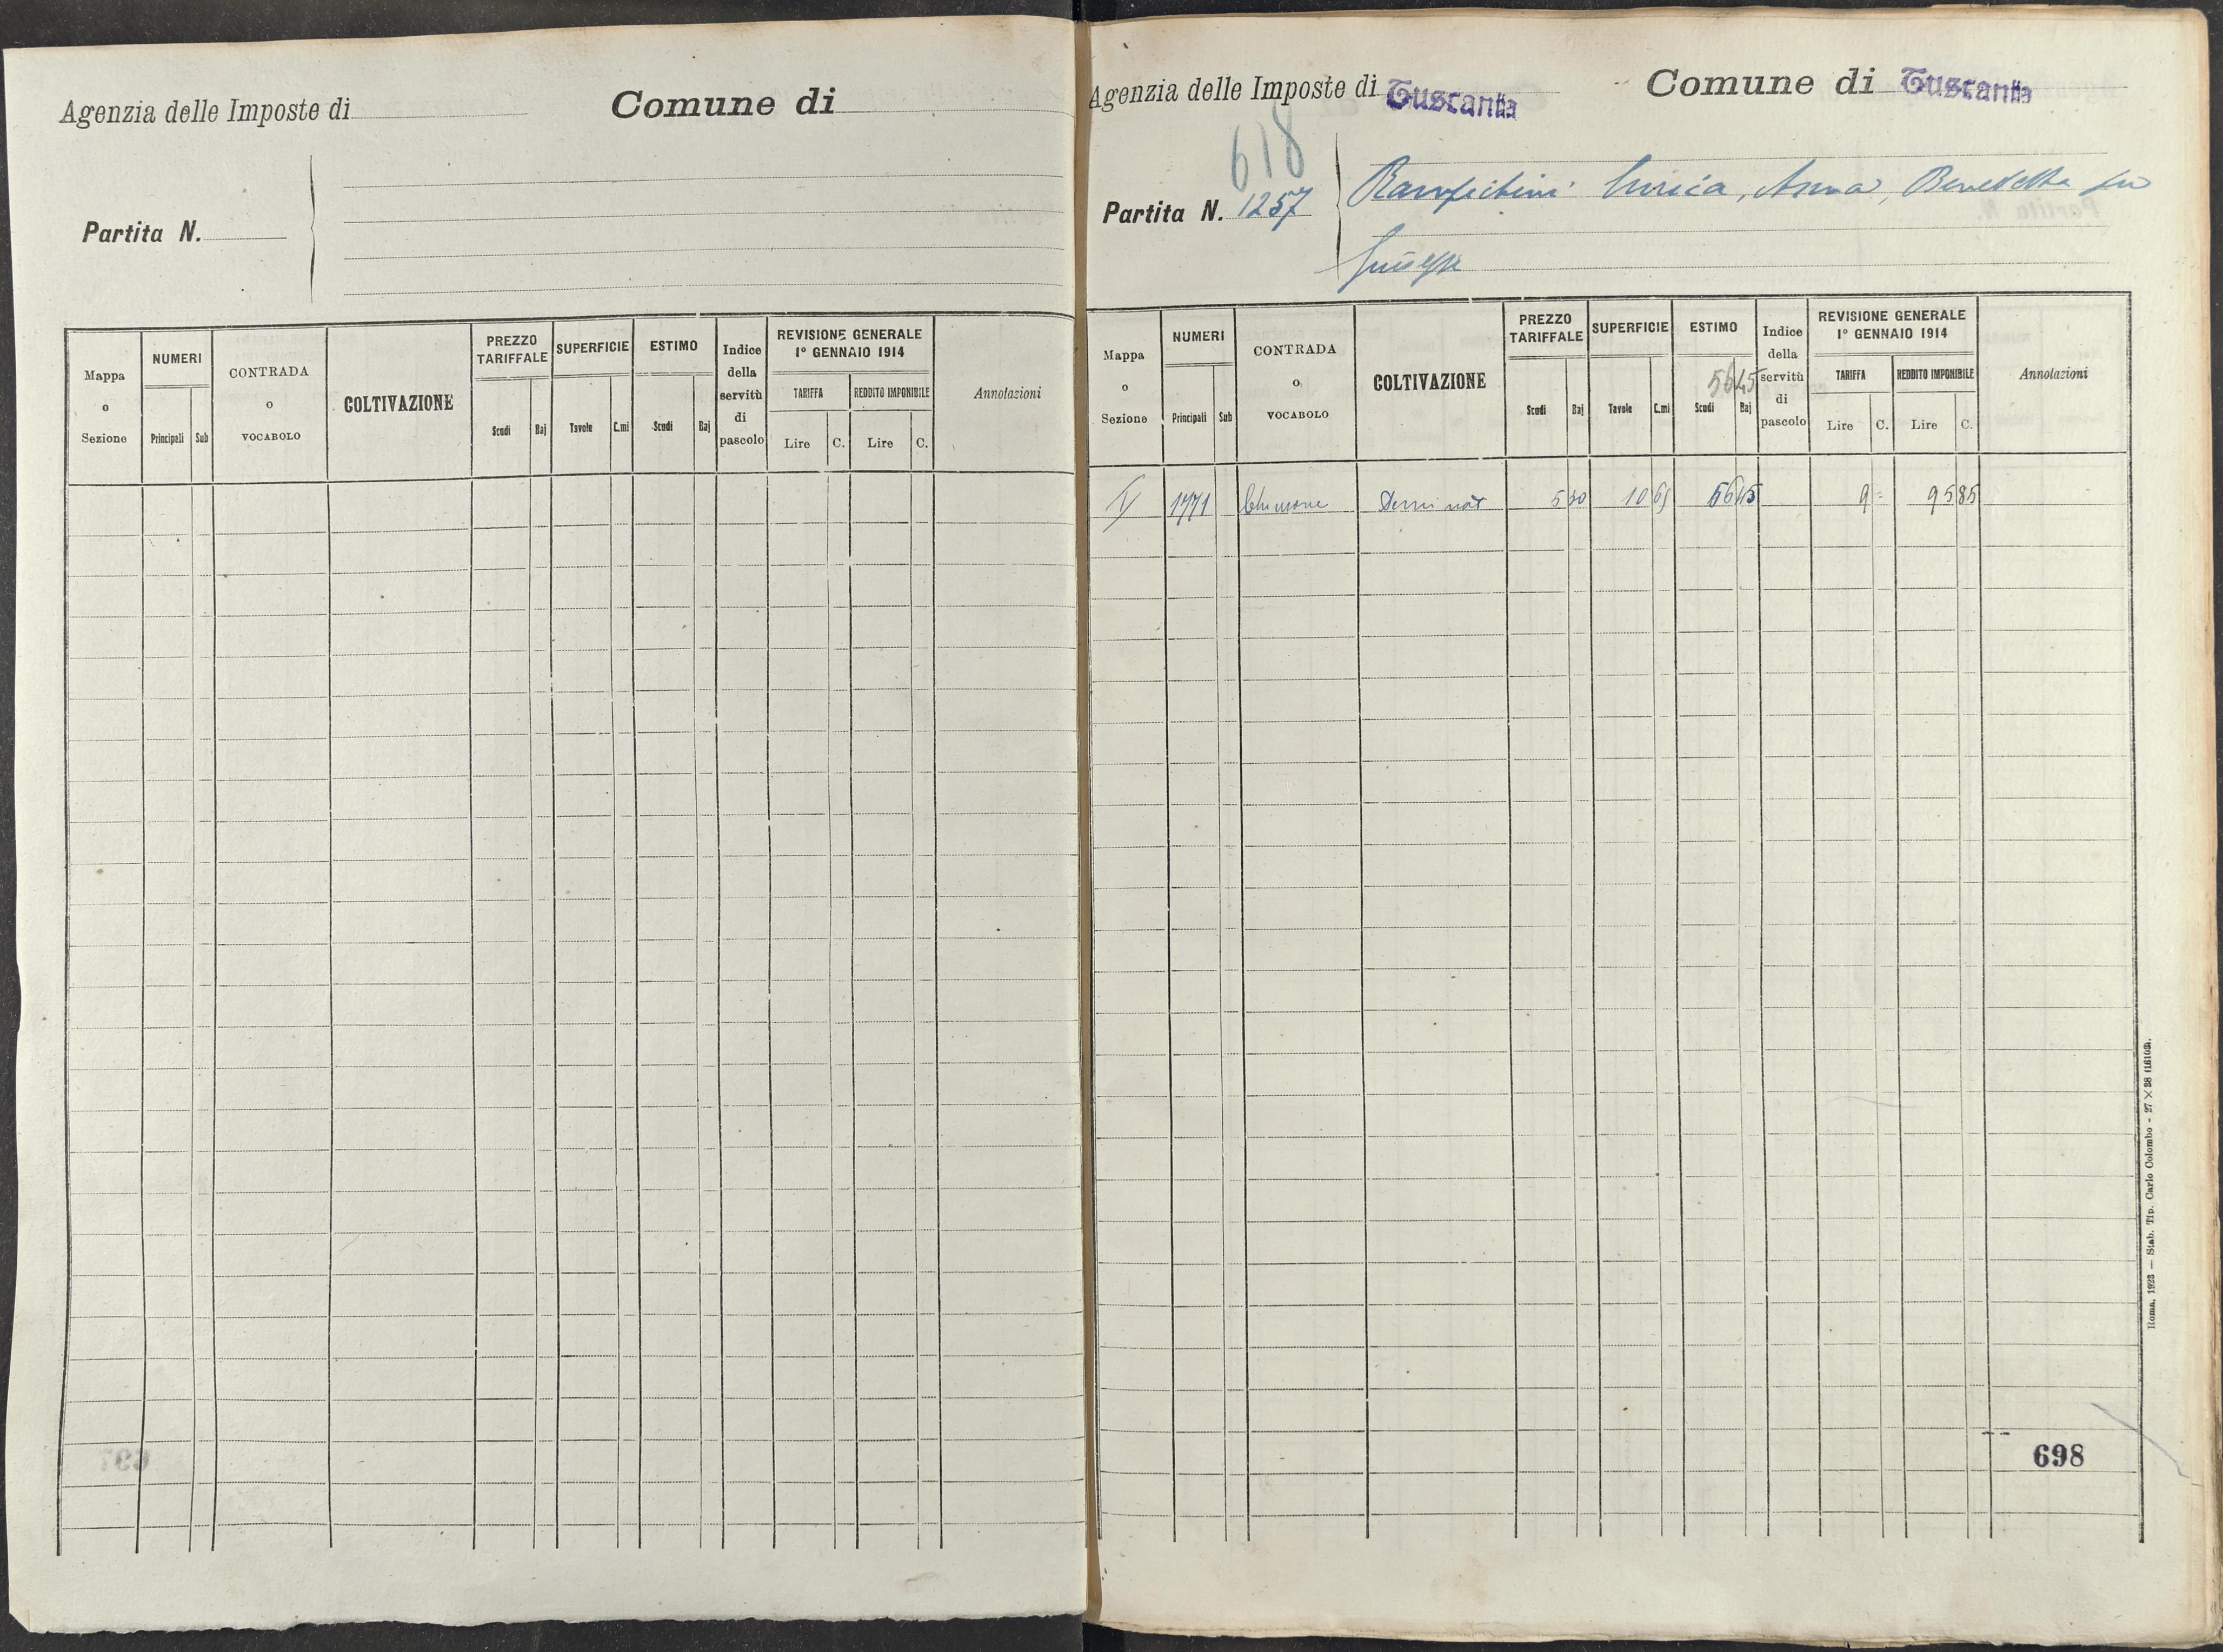 Agenzia delle Imposte di
Comune di
Partita N.
Mappa o Sezione
NUMERI
Principali
Sub
CONTRADA O VOCABOLO
COLTIVAZIONE
PREZZO TARIFFALE
Scudi
Baj
SUPERFICIE
Tavole
C.mi
ESTIMO
Scudi
Baj
Indice della servitù di pascolo
REVISIONE GENERALE
1º GENNAIO 1914
TARIFFA
Lire
C.
REDDITO IMPONIBILE
Lire
C.
Annotazioni
Agenzia delle Imposte di Tuscania
Comune di Tuscania
618
Partita N. 1257
Anna, Benedetta fu
Giuseppe
Mappa o Sezione
NUMERI
Principali
Sub
CONTRADA O VOCABOLO
COLTIVAZIONE
PREZZO TARIFFALE
Scudi
Baj
SUPERFICIE
Tavole
C.mi
ESTIMO
5645
Scudi
Baj
Indice della servitù di pascolo
REVISIONE GENERALE
1º GENNAIO 1914
TARIFFA
Lire
C.
REDDITO IMPONIBILE
Lire
C.
Annotazioni
1771 5 30 10 65 56 45 9 = 95 85
698
Roma, 1923 — Stab. Tip. Carlo Colombo - 27 × 38 (16103).